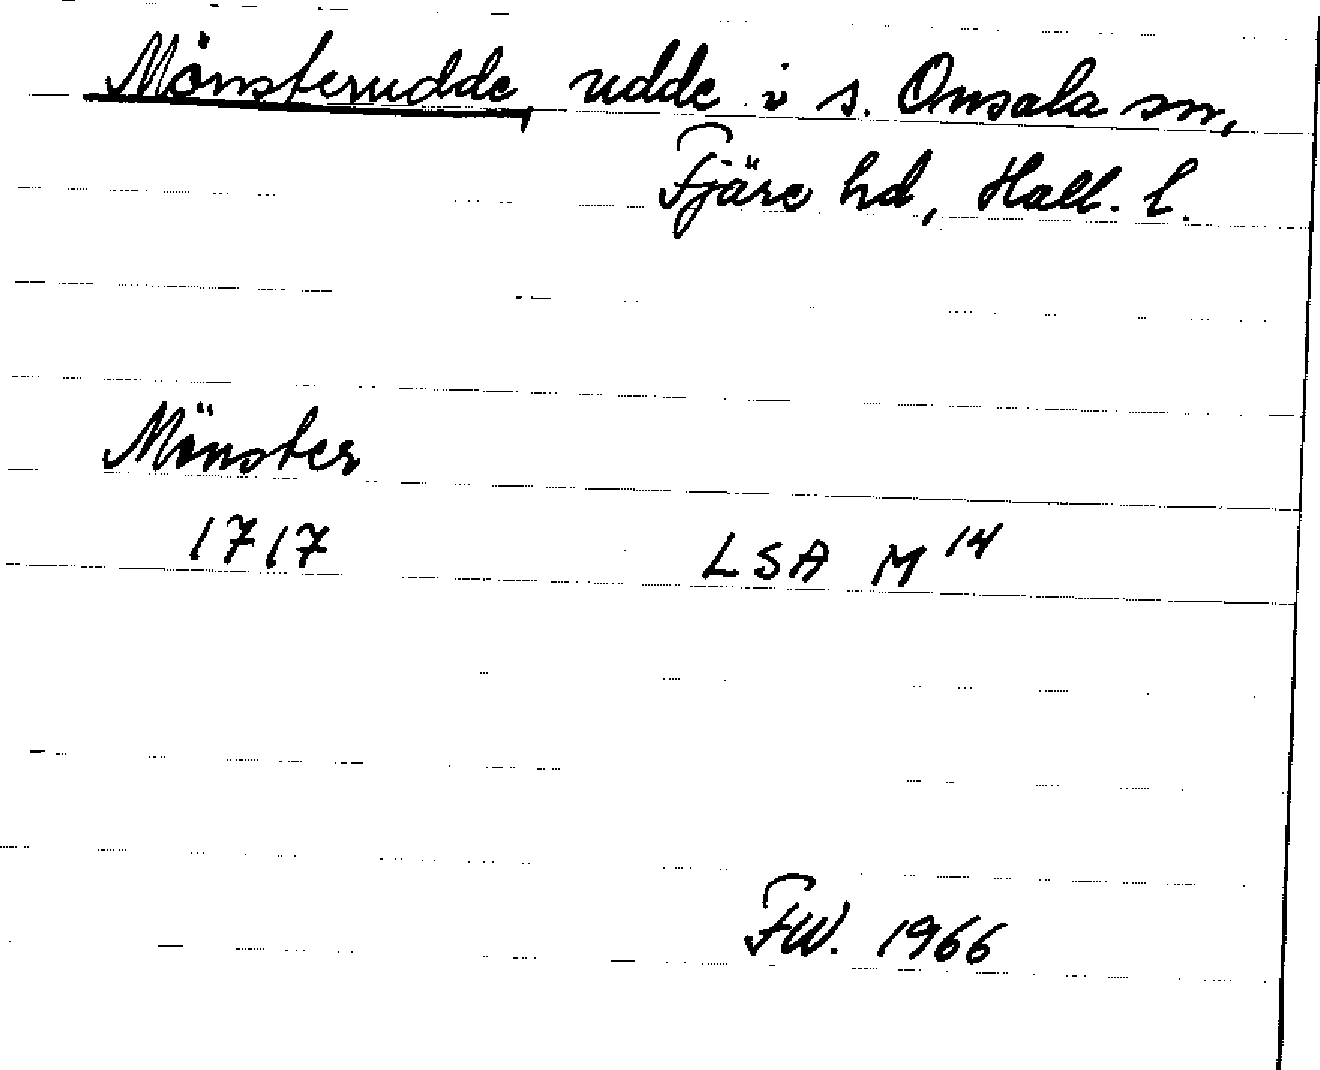 Mönsterudde, udde i s. Onsala sn,
Fjäre hd, Hall. l.
Mönster
1717 LSA M 14
FW. 1966